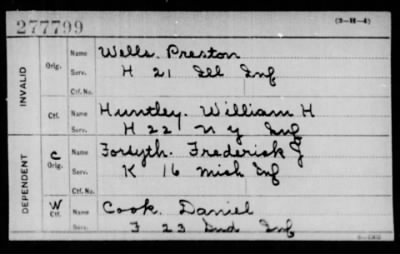 277799 (3-H-4)
INVALID Orig. Name Wells. Preston
Serv. H 21 Ill Inf
Ctf. No.
Ctf. Name Huntley. William H
Serv. H 22 N Y Inf
DEPENDENT C Orig. Name Forsyth. Frederick J
Serv. K 16 Mich Inf
Ctf. No.
W Ctf. Name Cook. Daniel
Serv. F 23 Ind Inf